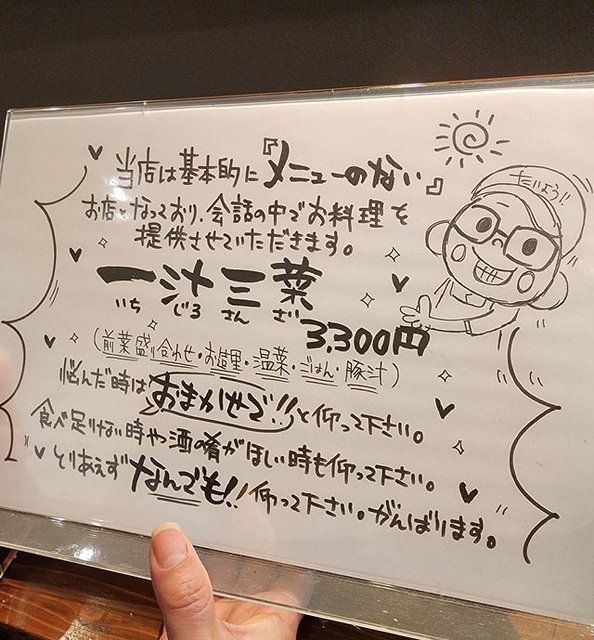 たいよう!!
当店は基本的に『メニューのない』
お店となっており、会話の中でお料理を
提供させていただきます。
一汁三菜
いちじるさんざい
3,300円
(前菜盛り合わせ・お造里・温菜・ごはん・豚汁)
悩んだ時はおまかせで!!と仰って下さい。
食べ足りない時や酒の肴がほしい時も仰って下さい。
とりあえずなんでも!!仰って下さい。がんばります。